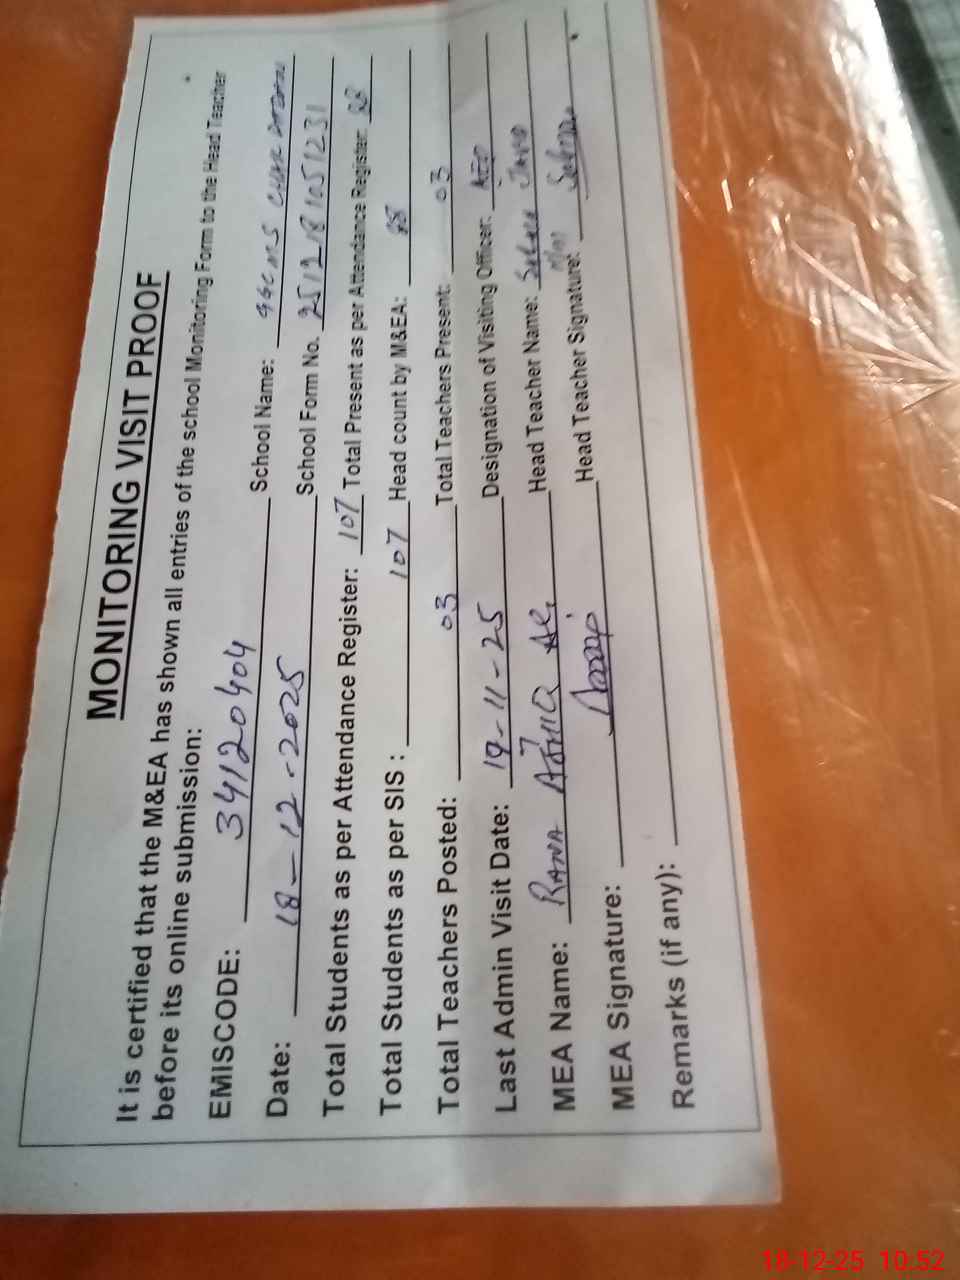 MONITORING VISIT PROOF
It is certified that the M&EA has shown all entries of the school Monitoring Form to the Head Teacher
before its online submission:
EMISCODE: 34120404 School Name: GGCMS CHAK
Date: 18-12-2025 School Form No. 2512181051231
Total Students as per Attendance Register: 107 Total Present as per Attendance Register: 88
Total Students as per SIS : 107 Head count by M&EA: 88
Total Teachers Posted: 03 Total Teachers Present: 03
Last Admin Visit Date: 19-11-25 Designation of Visiting Officer: AEO
MEA Name: RANA Ali Head Teacher Name:
MEA Signature: Head Teacher Signature:
Remarks (if any):
18-12-25 10:52